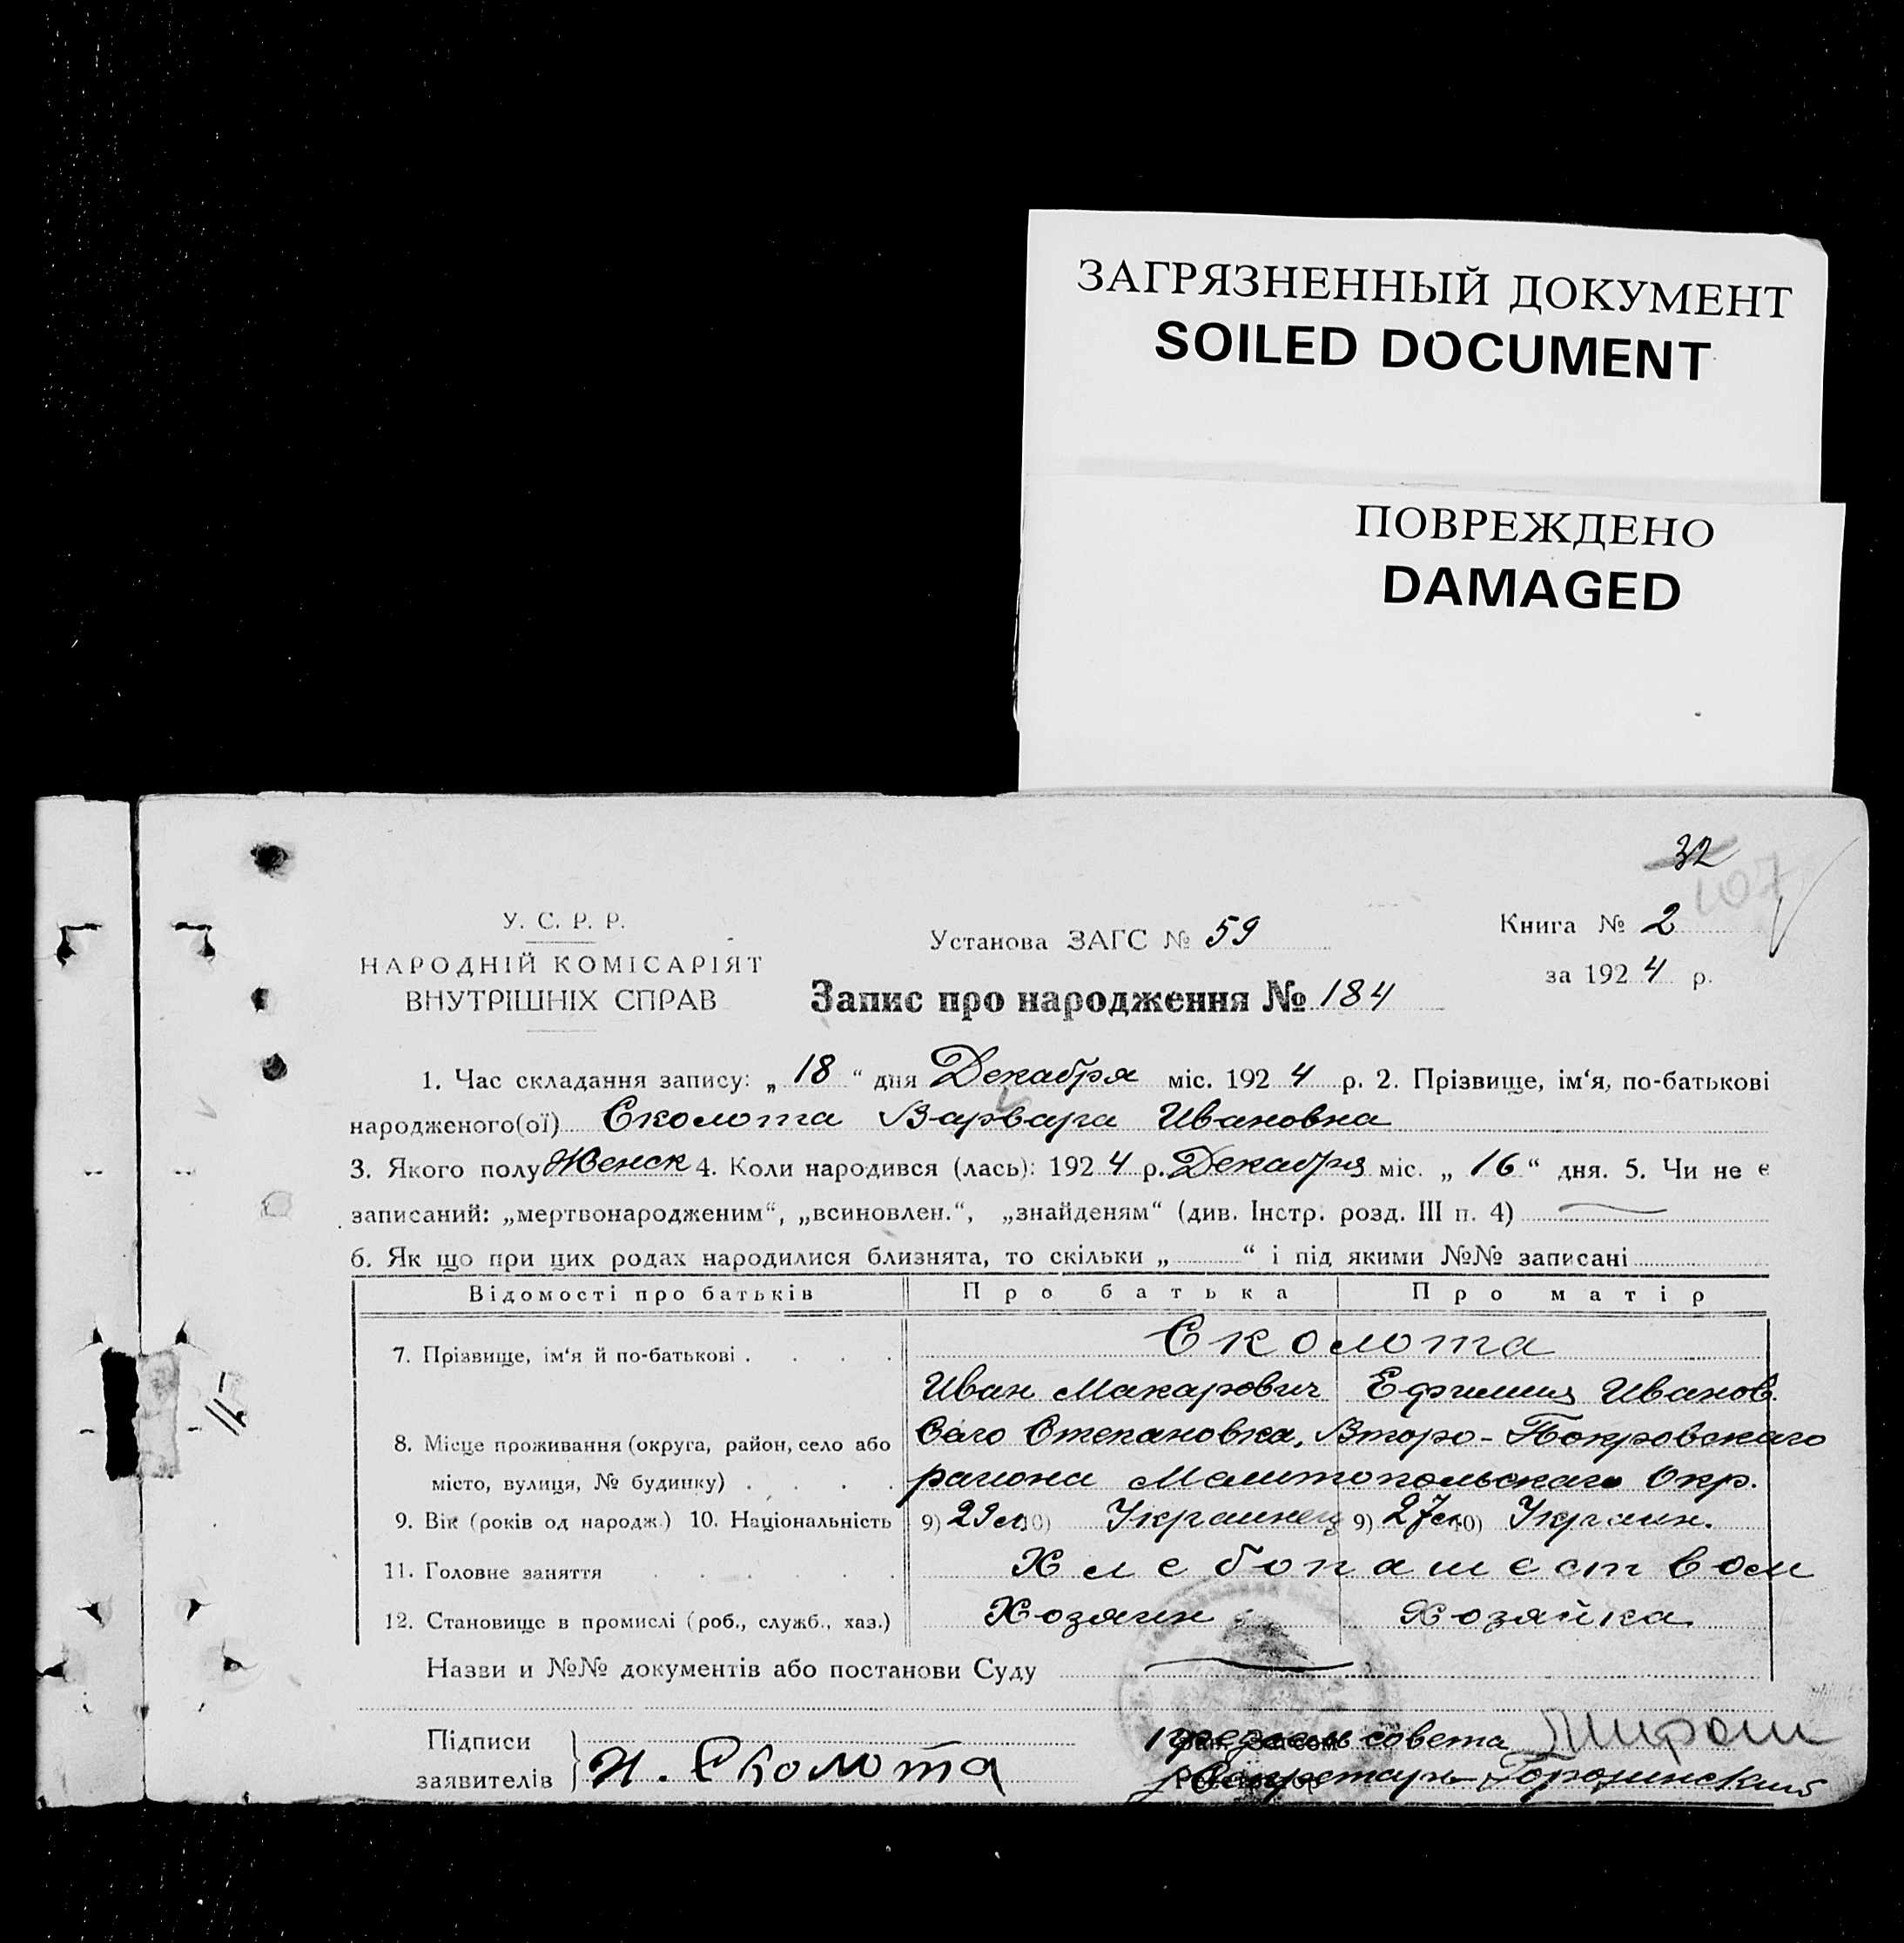 ЗАГРЯЗНЕННЫЙ ДОКУМЕНТ
SOILED DOCUMENT
ПОВРЕЖДЕНО
DAMAGED
32
107
У. С. Р. Р.
НАРОДНІЙ КОМІСАРІЯТ
ВНУТРІШНІХ СПРАВ
Установа ЗАГС № 59
Книга № 2
за 1924 р.
Запис про народження № 184
1. Час складання запису: „ 18 “ дня Декабря міс. 1924 р. 2. Прізвище, ім‘я, по-батькові
народженого(ої) Сколота Варвара Ивановна
3. Якого полу Женск 4. Коли народився (лась): 1924 р. Декабря міс. „ 16 “ дня. 5. Чи не є
записаний: „мертвонародженим“, „всиновлен.“, „знайденям“ (див. Інстр. розд. III п. 4)
6. Як що при цих родах народилися близнята, то скільки „ “ і під якими №№ записані
Відомості про батьків Про батька Про матір
7. Прізвище, ім‘я й по-батькові . . . . Сколота
Иван Макарович Ефимия Иванов.
8. Місце проживання (округа, район, село або Село Степановка, Второ-Покровского
місто, вулиця, № будинку) . . . . района Мелитопольского Окр.
9. Вік (років од народж.) 10. Національність 9) 29 л 10) Украинец 9) 27 л 10) Украин.
11. Головне заняття . . . . . . Хлебопашеством
12. Становище в промислі (роб., служб., хаз.) Хозяин Хозяйка
Назви и №№ документів або постанови Суду
Підписи
заявителів
И. Сколота
совета
Секретарь Городинский